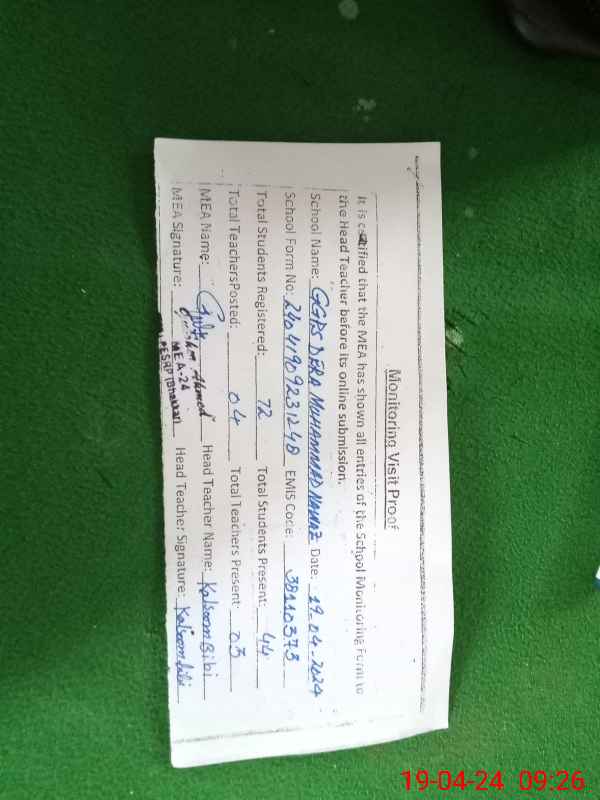 Monitoring Visit Proof
It is certified that the MEA has shown all entries of the School Monitoring Form to
the Head Teacher before its online submission.
School Name: GGPS DERA MUHAMMAD NAWAZ Date: 19-04-2024
School Form No: 24041909231248 EMIS Code: 38110373
Total Students Registered: 72 Total Students Present: 44
Total TeachersPosted: 04 Total Teachers Present: 03
MEA Name: Ahmed Head Teacher Name: Kalsoom Bibi
MEA Signature: Head Teacher Signature: Kalsoom bibi
MEA-24
PESRP (Bhakkar)
19-04-24 09:26